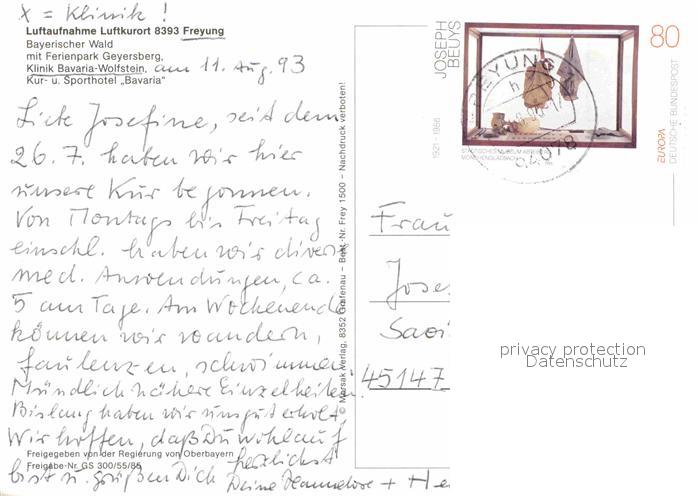 X = Klinik !
Luftaufnahme Luftkurort 8393 Freyung
Bayerischer Wald
mit Ferienpark Geyersberg,
Klinik Bavaria-Wolfstein, am 11. Aug. 93
Kur- u. Sporthotel „Bavaria"
Liebe Josefine, seit dem
26.7. haben wir hier
unsere Kur begonnen.
Von Montags bis Freitag
einschl. haben wir divers
med. Anwendungen, ca.
5 am Tage. Am Wochenende
können wir wandern,
faulenzen, schwimmen
Mündlich nähere Einzelheiten.
Bislang haben wir uns gut erholt
Wir hoffen, daß Du wohlauf
Freigegeben von der Regierung von Oberbayern
Freigabe-Nr. GS 300/55/85
bist u. grüßen Dich herzlichst
Deine Hannelore + He
© Morsak Verlag, 8352 Grafenau – Best.-Nr. Frey 1500 – Nachdruck verboten!
JOSEPH
BEUYS
1921 - 1986
80
DEUTSCHE BUNDESPOST
EUROPA
STÄDTISCHES MUSEUM
MÖNCHENGLADBACH
FREYUNG
94078
Frau
Jose
Saoi
45147
privacy protection
Datenschutz